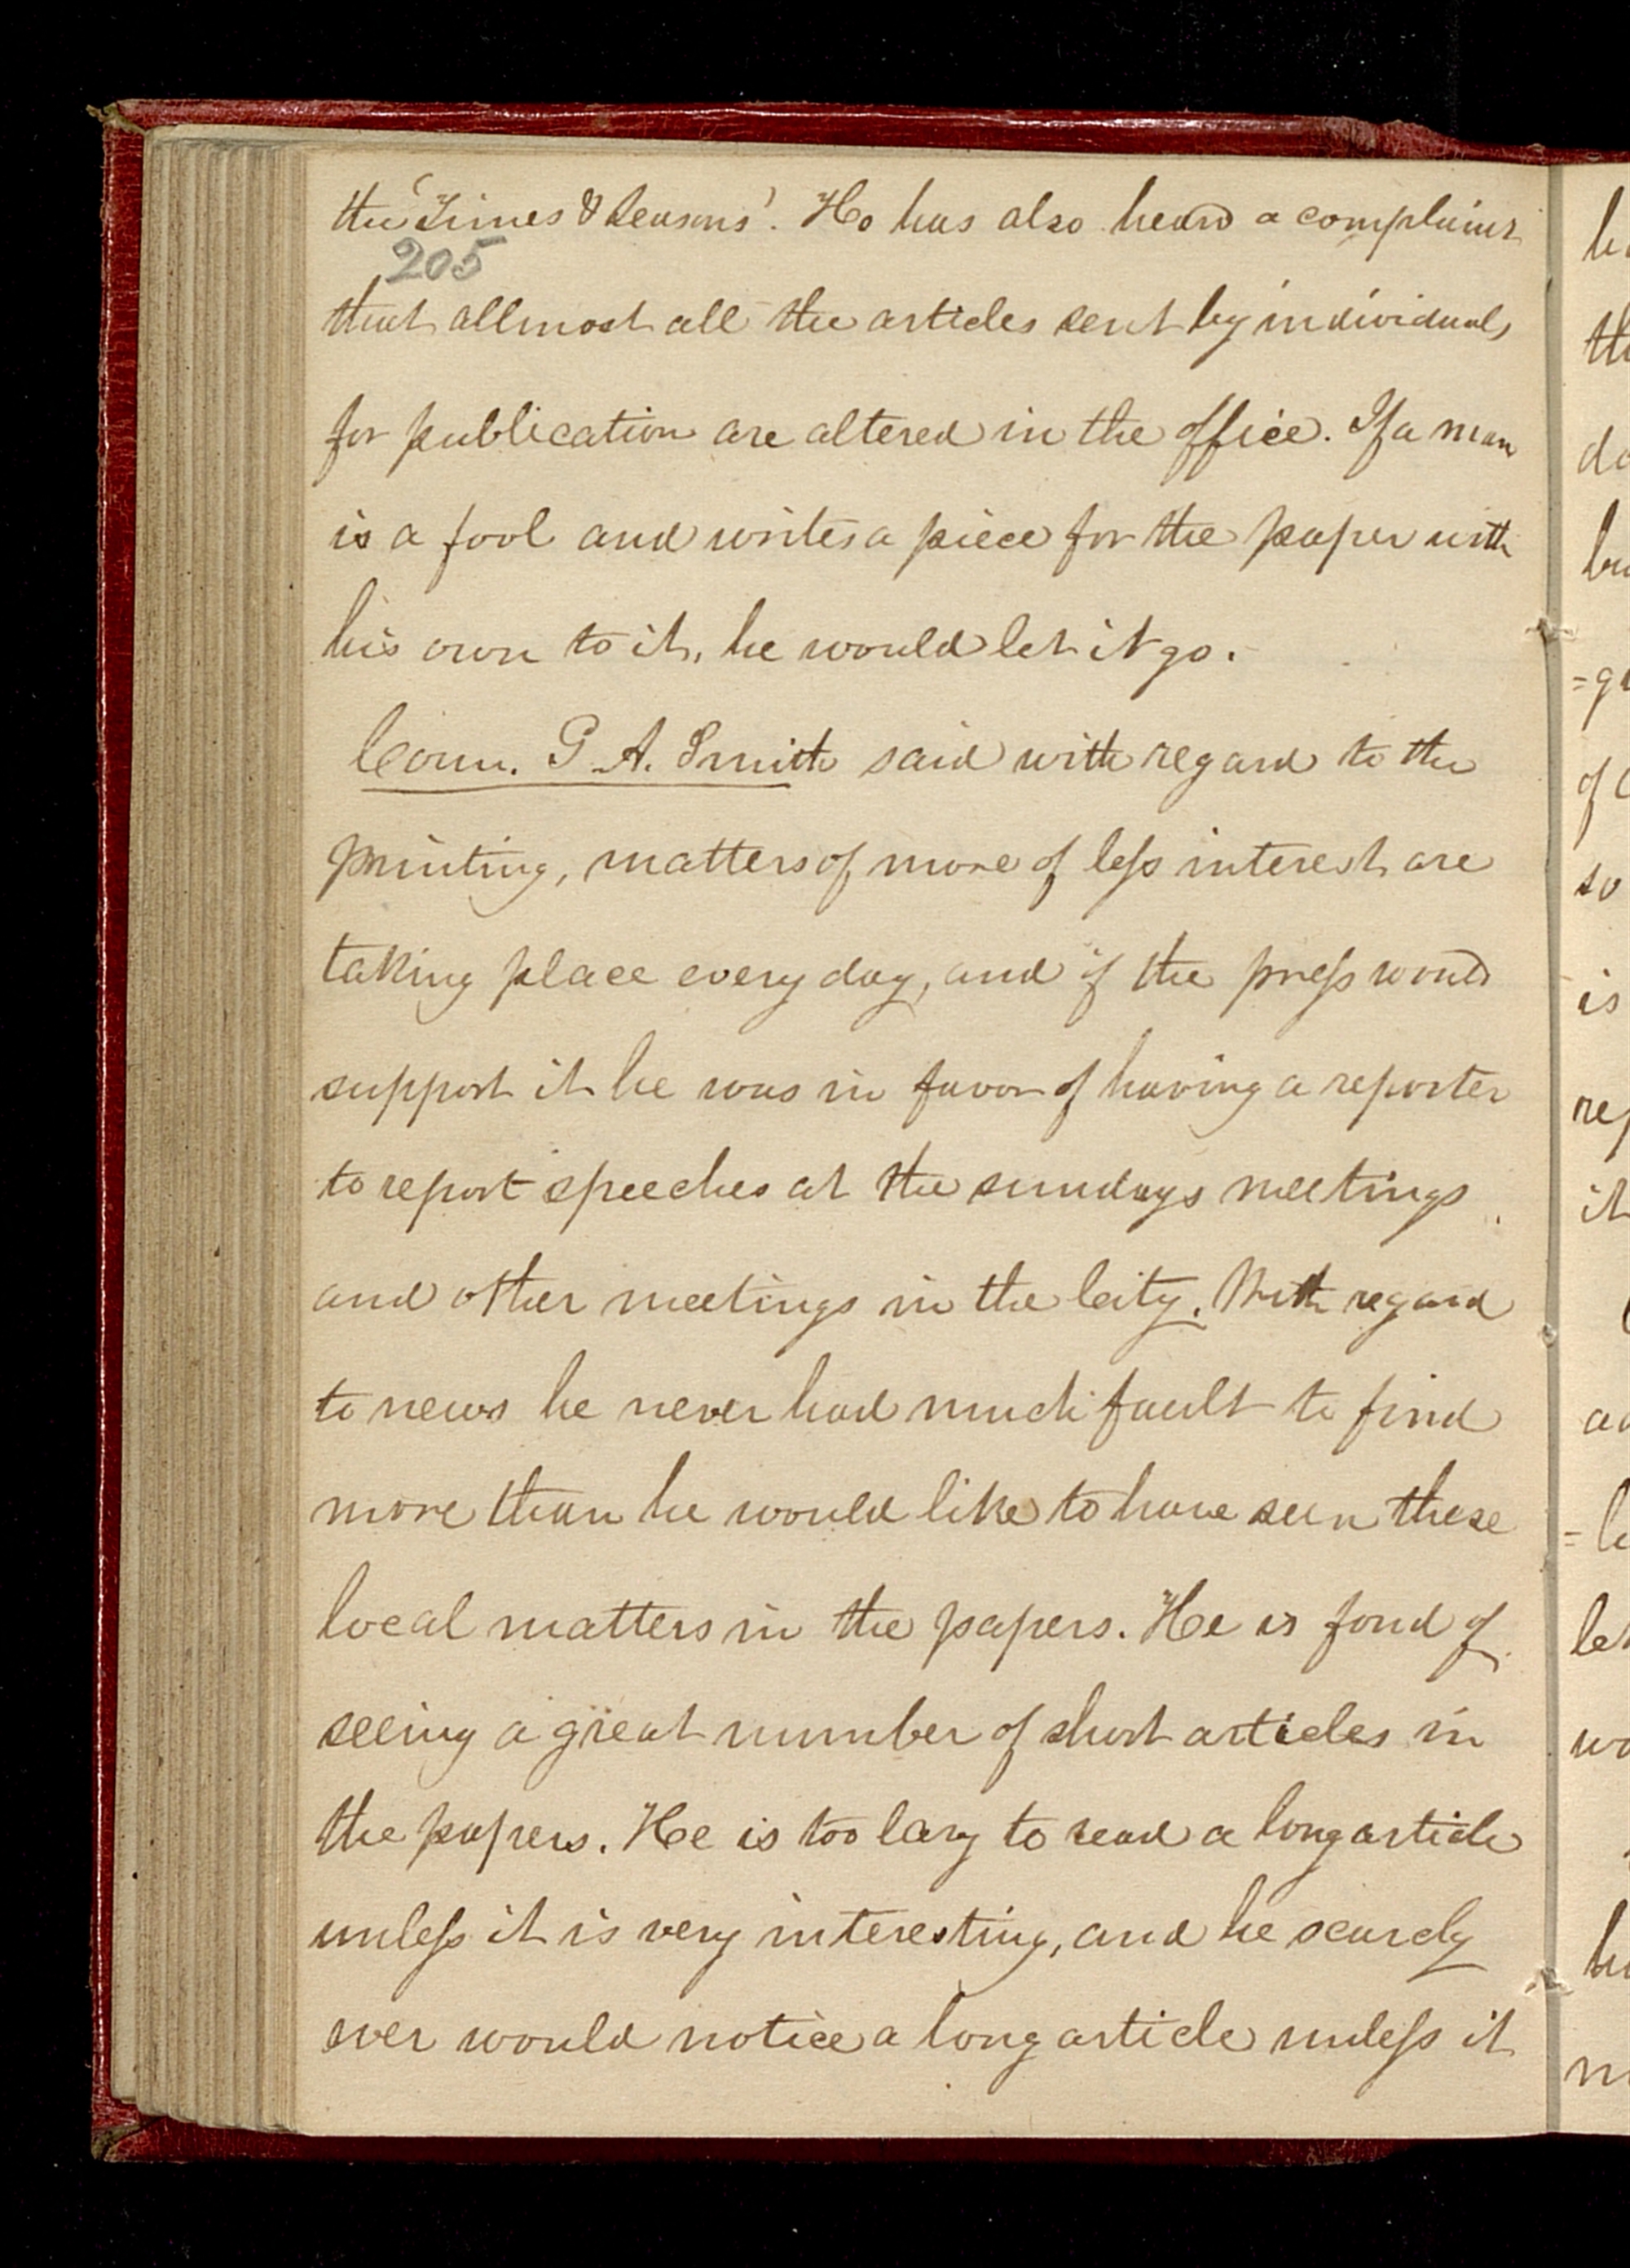 the 'Times & Seasons'. He has also heard a complaint
205
that allmost all the articles sent by individuals
for publication are altered in the office. If a man
is a fool and writes a piece for the paper with
his own to it, he would let it go.
Coun. G. A. Smith said with regard to the
printing, matters of more of less interest are
taking place every day, and if the press would
support it he was in favor of having a reporter
to report speeches at the sundays meetings
and other meetings in the City. With regard
to news he never had much fault to find
more than he would like to have seen these
local matters in the papers. He is fond of
seeing a great number of short articles in
the papers. He is too lazy to read a long article
unless it is very interesting, and he scarcely
ever would notice a long article unless it